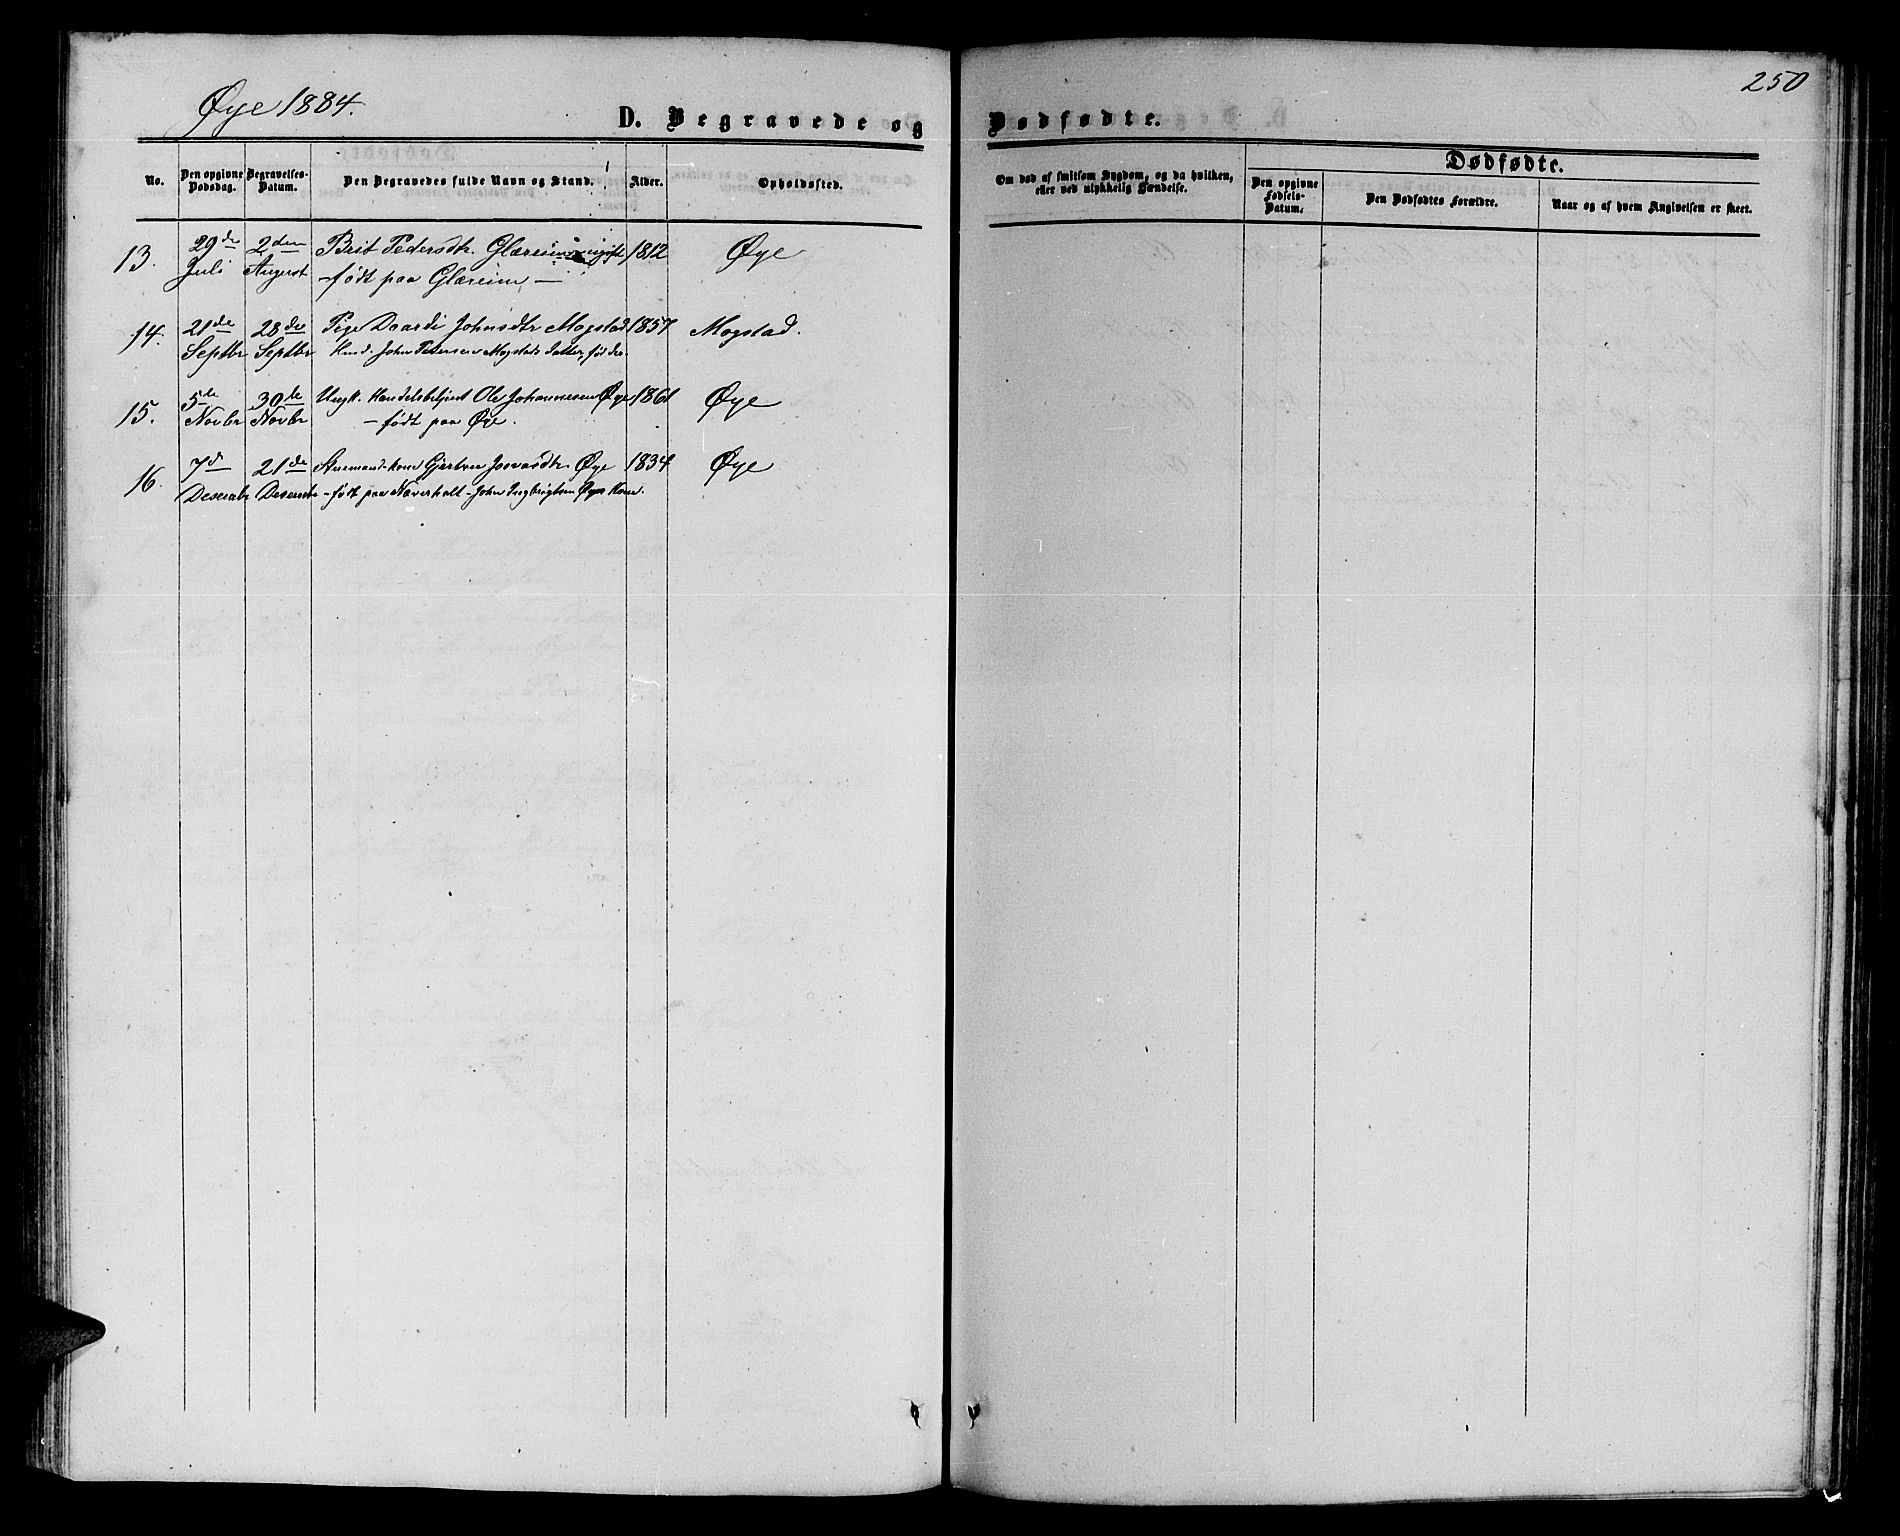 250
Øye 1884.
D. Begravede og Dødfødte.
Dødfødte.
No.
Den opgivne Dødsdag.
Begravelses-Datum.
Den Begravedes fulde Navn og Stand.
Alder.
Opholdssted.
Om død af smitsom Sygdom, og da hvilken, eller ved ulykkelig Hændelse.
Den opgivne Fødsels-Datum.
Den Dødfødtes Forældre.
Naar og af hvem Angivelsen er skeet.
13. 29de 2den Brit Pedersdtr. Glæreim ugift 1812 Øye
Juli August – født paa Glæreim –
14. 21de 28de Pige Daardi Johnsdtr Mogstad 1857 Mogstad.
Septbr Septbr John Petersen Mogstads Datter, fød der.
15. 5te 30te Ungk. Handelsbetjent Ole Johannesen Øye 1861 Øye
Novbr Novbr – født paa Øye.
16. 7d 21de Gjertru Øye 1834 Øye
Desembr Desembr – født paa Næverholt – John Ingbrigtsen Øyes Kone.